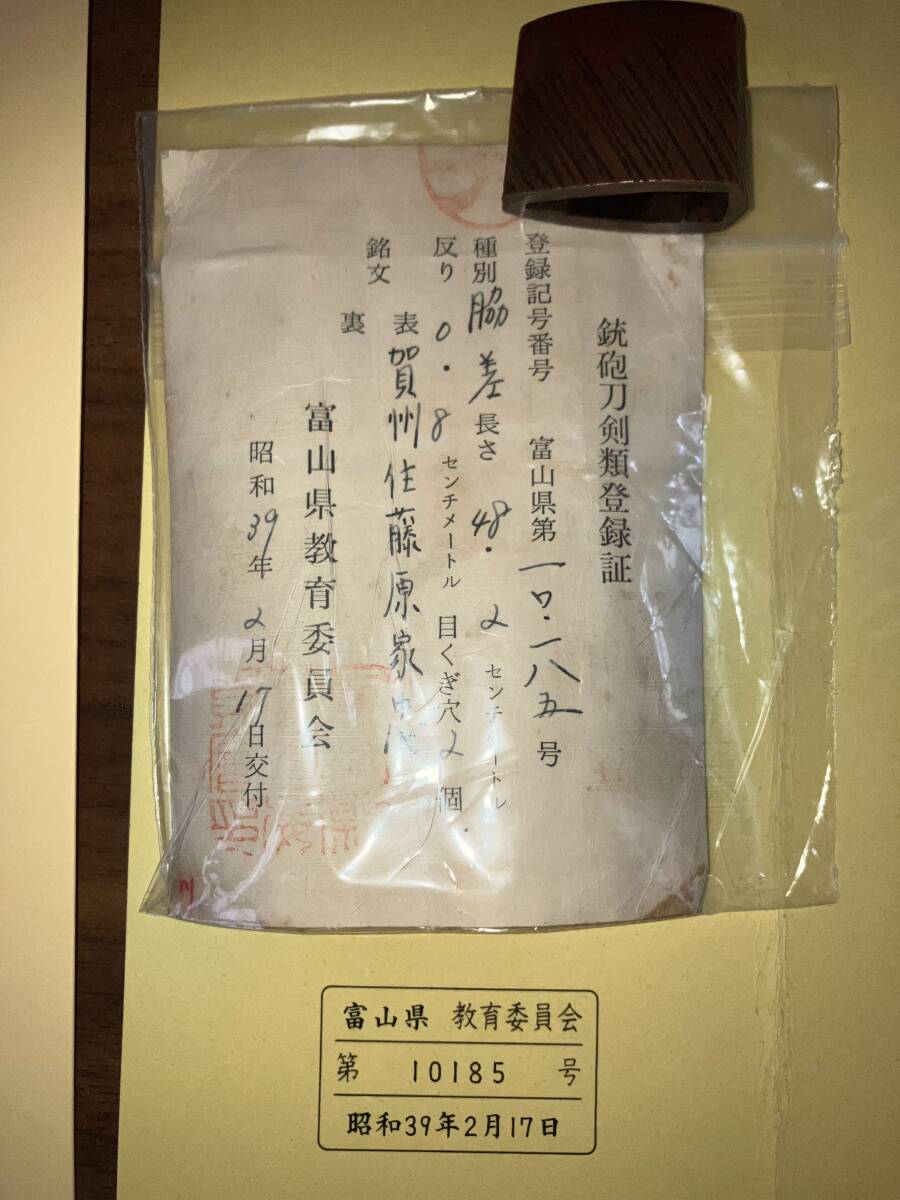 銃砲刀剣類登録証
登録記号番号 富山県第一〇・一八五号
種別 脇差 長さ 48.2 センチメートル
反り 0.8 センチメートル 目くぎ穴 2 個
銘文 表 賀州住藤原家忠
裏
富山県教育委員会
昭和39年2月17日交付
富山県 教育委員会
第 10185 号
昭和39年2月17日